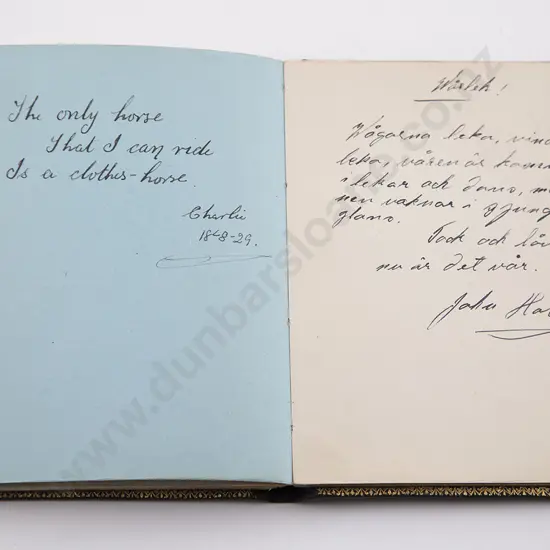 The only horse
That I can ride
Is a clothes-horse.
Charlie
18-8-29.
Vågarna leka, vind
leka, våren är
i lekar och dans,
nen vaknar i
glans.
Tack och
nu är det vår.
John
www.dunbarsloane.co.nz